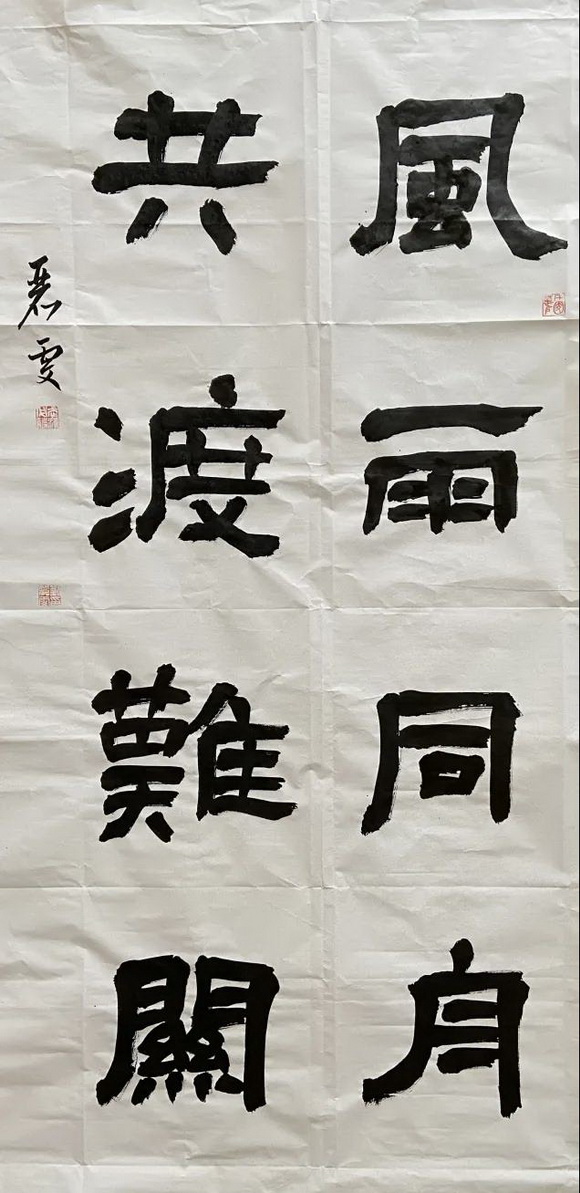 風雨同舟
共渡難關
雯